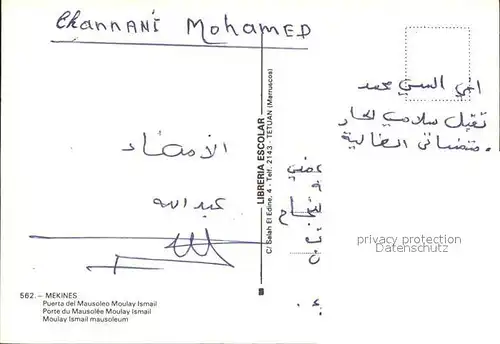 Channani Mohamed
أخي السي محمد
تقبل سلامي الحار
الغالية.
الإمضاء
عبد الله
LIBRERIA ESCOLAR
C/ Salah El Edine, 4 - Telf. 2143 - TETUAN (Marruecos)
privacy protection
Datenschutz
562.— MEKINES
Puerta del Mausoleo Moulay Ismail
Porte du Mausolée Moulay Ismail
Moulay Ismail mausoleum